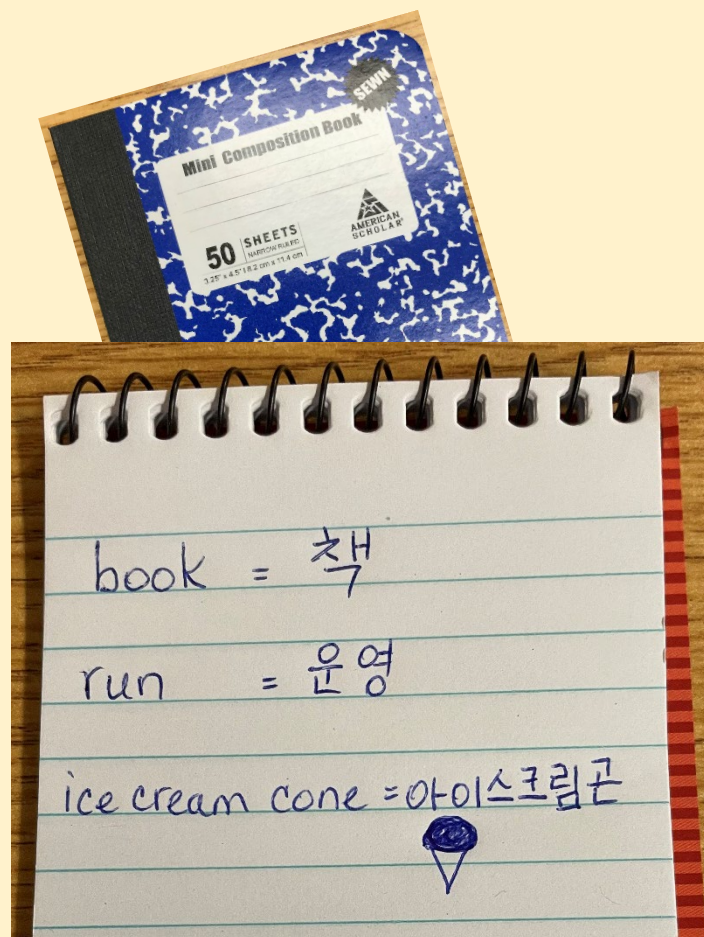 SEWN
Mini Composition Book
50 SHEETS
NARROW RULED
3.25" x 4.5" | 8.2 cm x 11.4 cm
AMERICAN
SCHOLAR®
book = 책
run = 운영
ice cream cone = 아이스크림곤